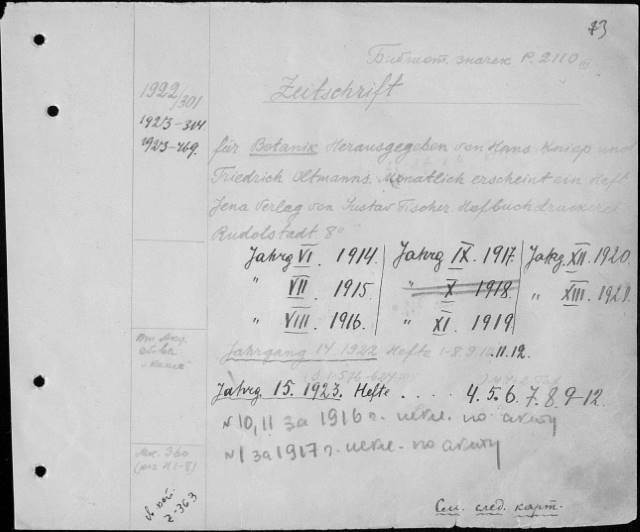 73
Библиот. значек P. 2110
Zeitschrift
1922/301
1923-314
1923-769.
für Botanik Herausgegeben von Hans Kniep und
Friedrich Oltmanns. Monatlich erscheint ein Heft
Jena Verlag von Gustav Fischer Hofbuchdruckerei
Rudolstadt 8°
Jahrg VI. 1914. Jahrg IX. 1917. Jahrg. XII. 1920.
" VII. 1915. " X 1918. " XIII. 1921.
" VIII. 1916. " XI. 1919.
Jahrgang 14 1922 Hefte 1-8. 9. 10. 11. 12.
Jahrg. 15. 1923. Hefte . . . . 4. 5. 6. 7. 8. 9-12.
№ 10, 11 за 1916 г. искл. по акту
№ 1 за 1917 г. искл. по акту
Мк. 360
2-363
См. след. карт.